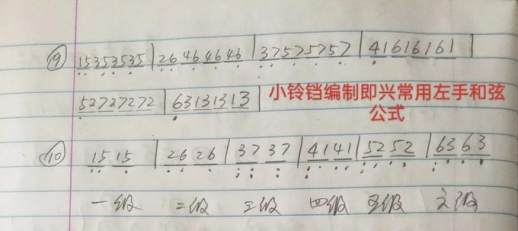 (9) 15353535 | 26464646 | 37575757 | 41616161 |
52727272 | 63131313 | 小铃铛编制即兴常用左手和弦
公式
(10) 1515 | 2626 | 3737 | 4141 | 5252 | 6363
一级 二级 三级 四级 五级 六级